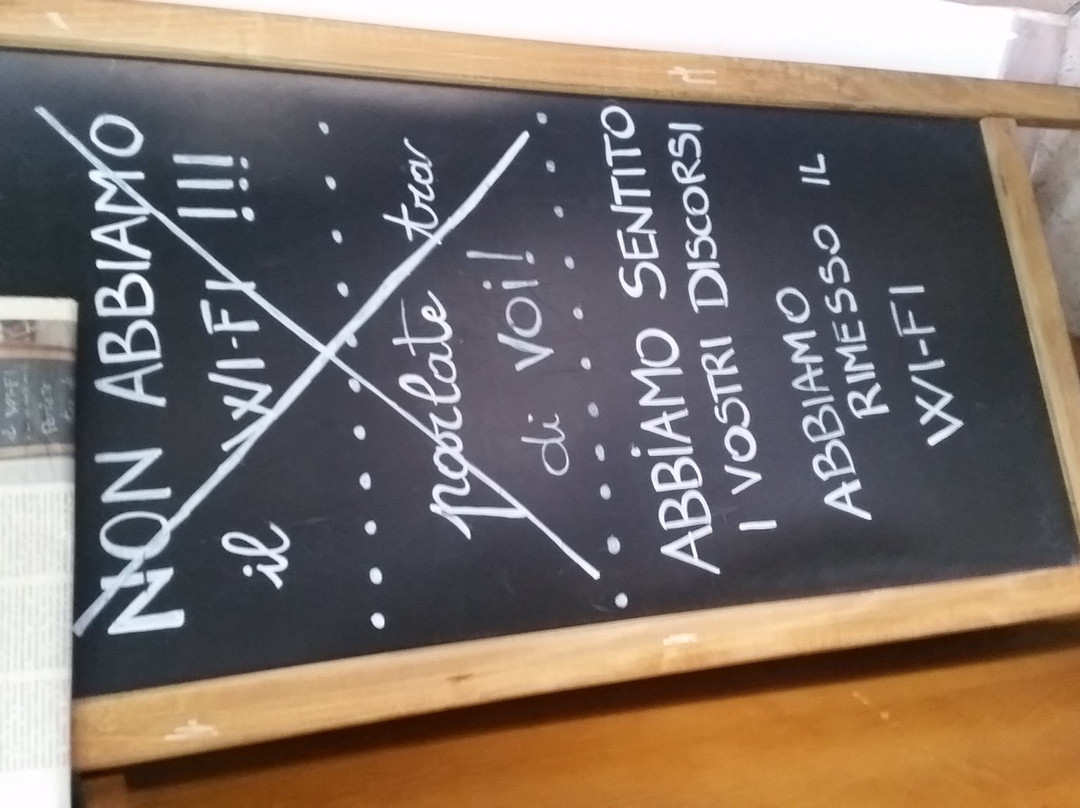 NON ABBIAMO
il WI-FI !!!
parlate tra
di VOI!
ABBIAMO SENTITO
I VOSTRI DISCORSI
ABBIAMO
RIMESSO IL
WI-FI